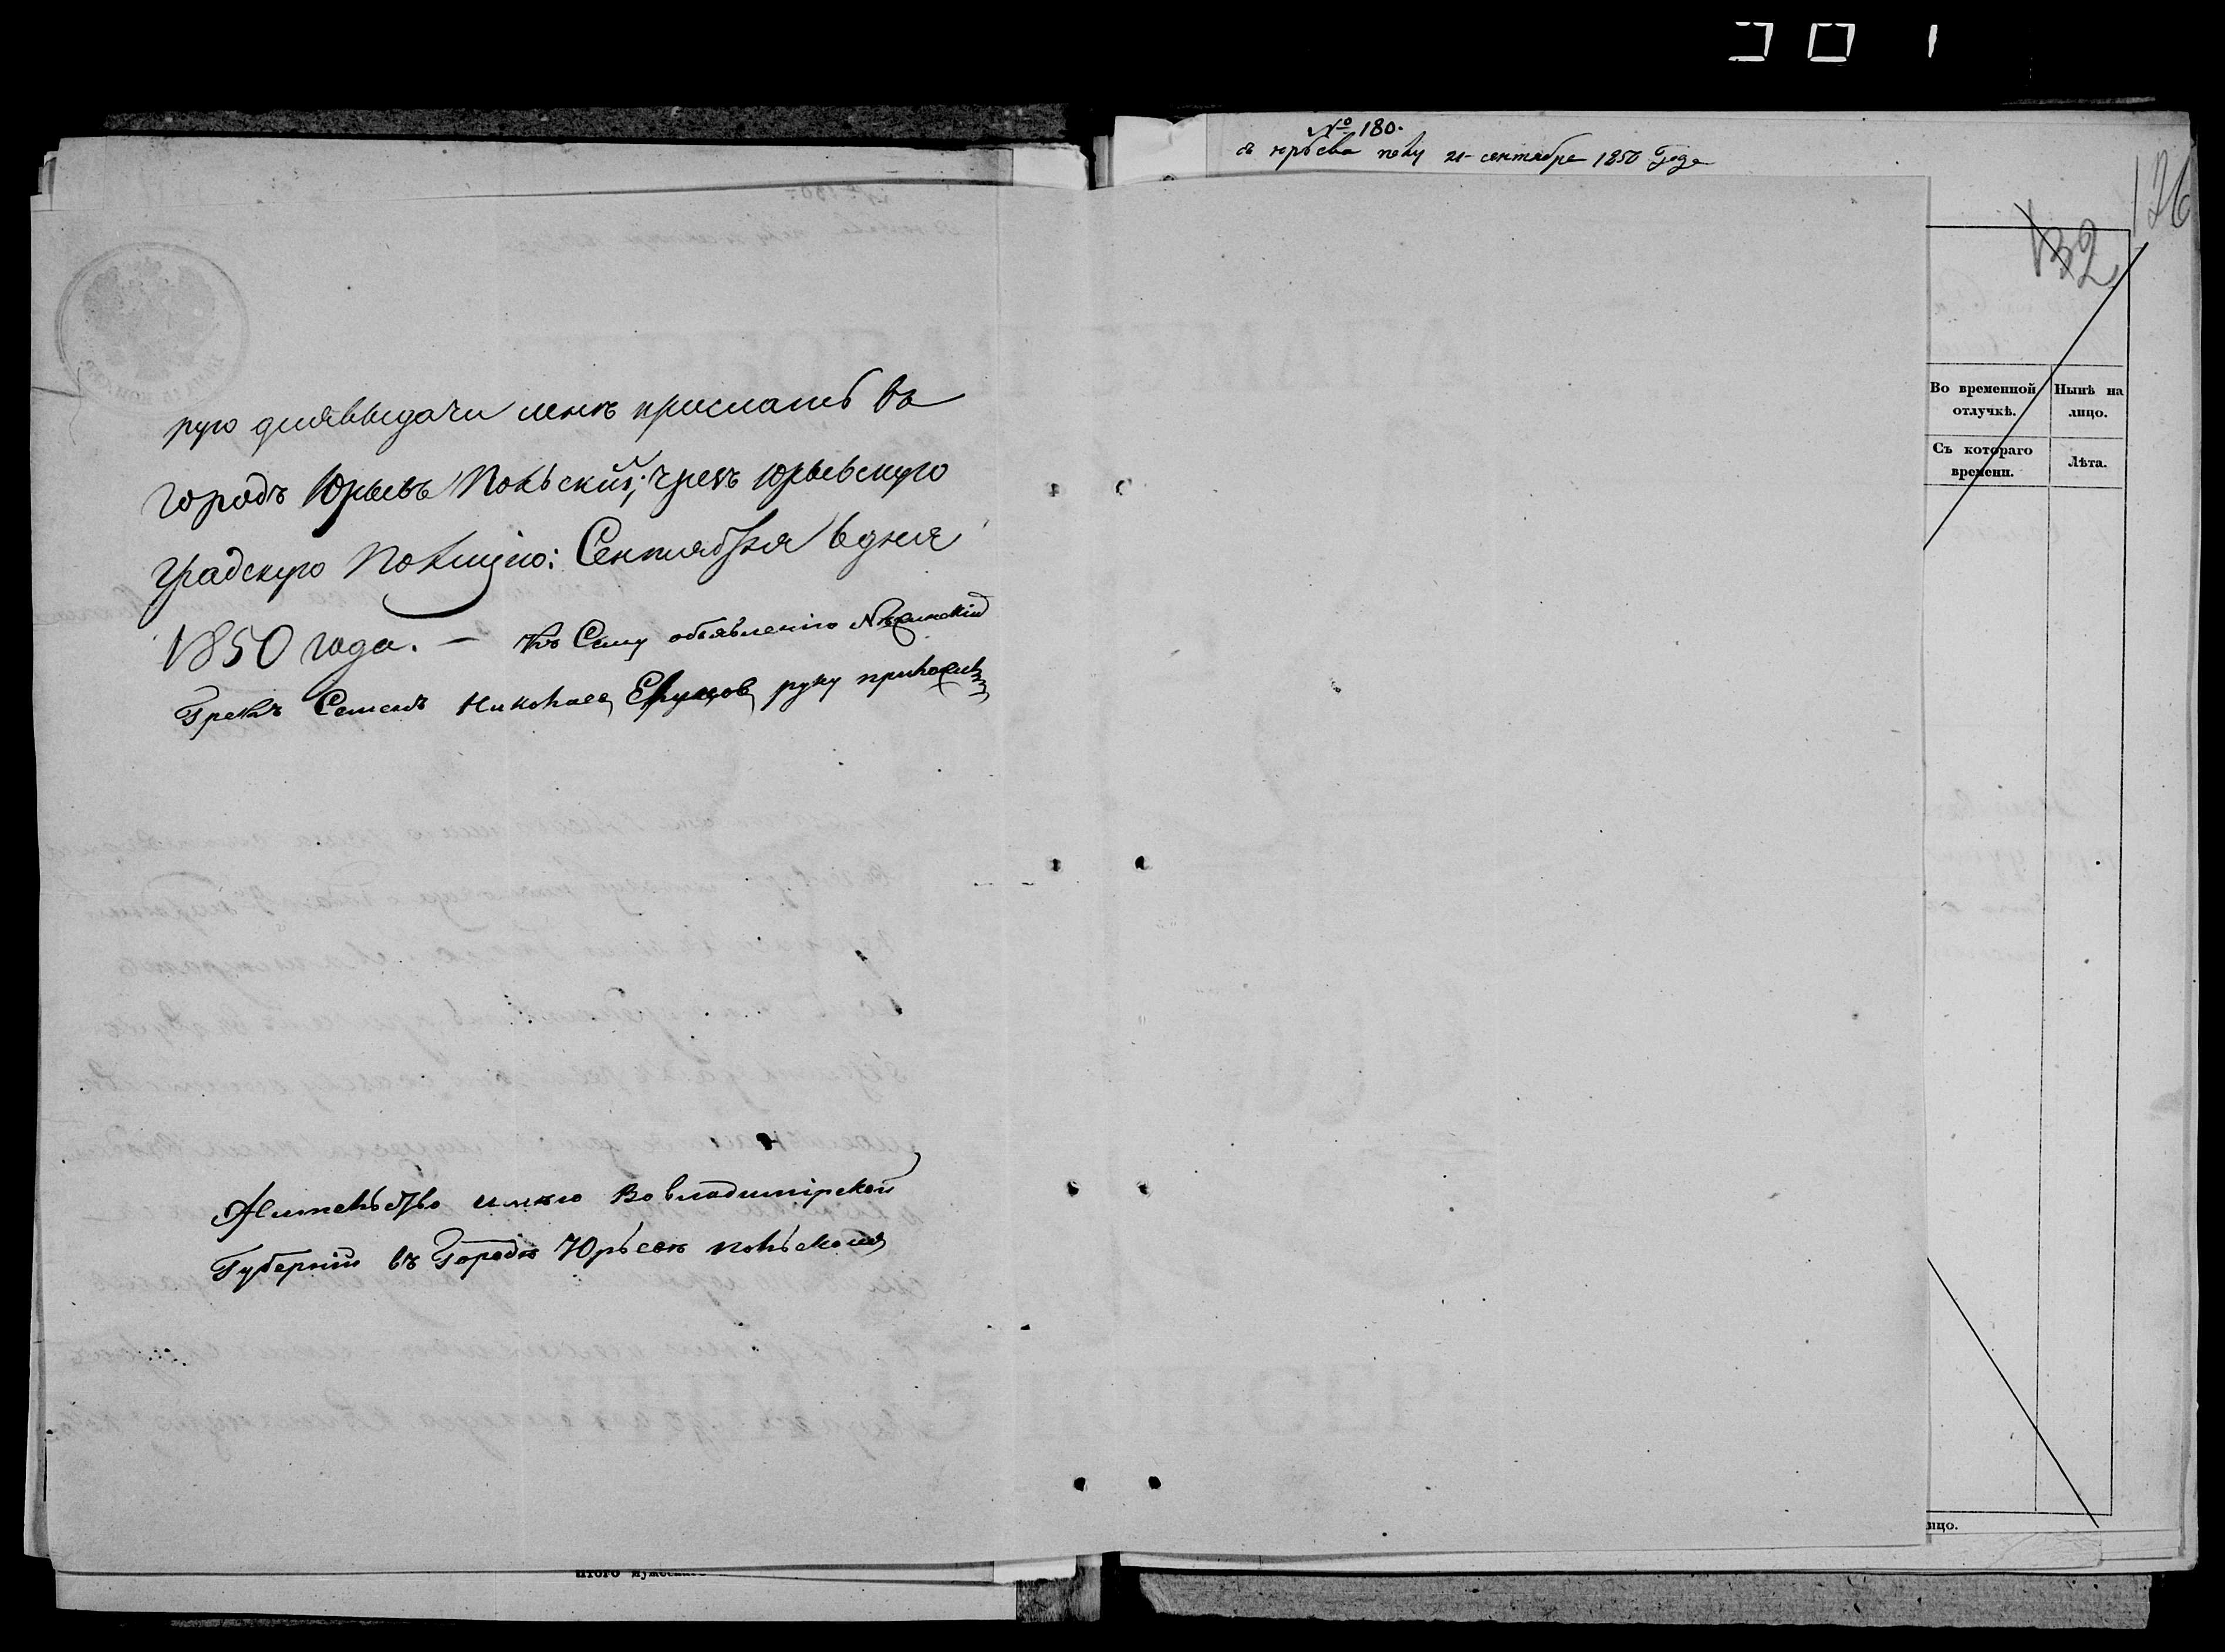 рую для выдачи мнѣ прислать въ
городъ Юрьевъ Польскій, чрезъ Юрьевскую
градскую Полицію: Сентября 6 дня
1850 года. — Къ Сему объявленію Нѣжинскій
Грекъ Семенъ Николаев руку приложилъ
Жительство имѣю Во владимірской
Губерніи въ Городѣ Юрьевѣ польскомъ
№ 180.
21 сентября 1850 Года
126
132
Во временной отлучкѣ.
Нынѣ на лицо.
Съ котораго времени.
Лѣта.
ицо.
Итого мужескаго